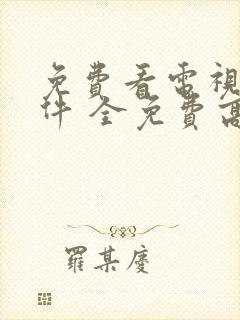 免費看電視
件 全免費高
羅某慶